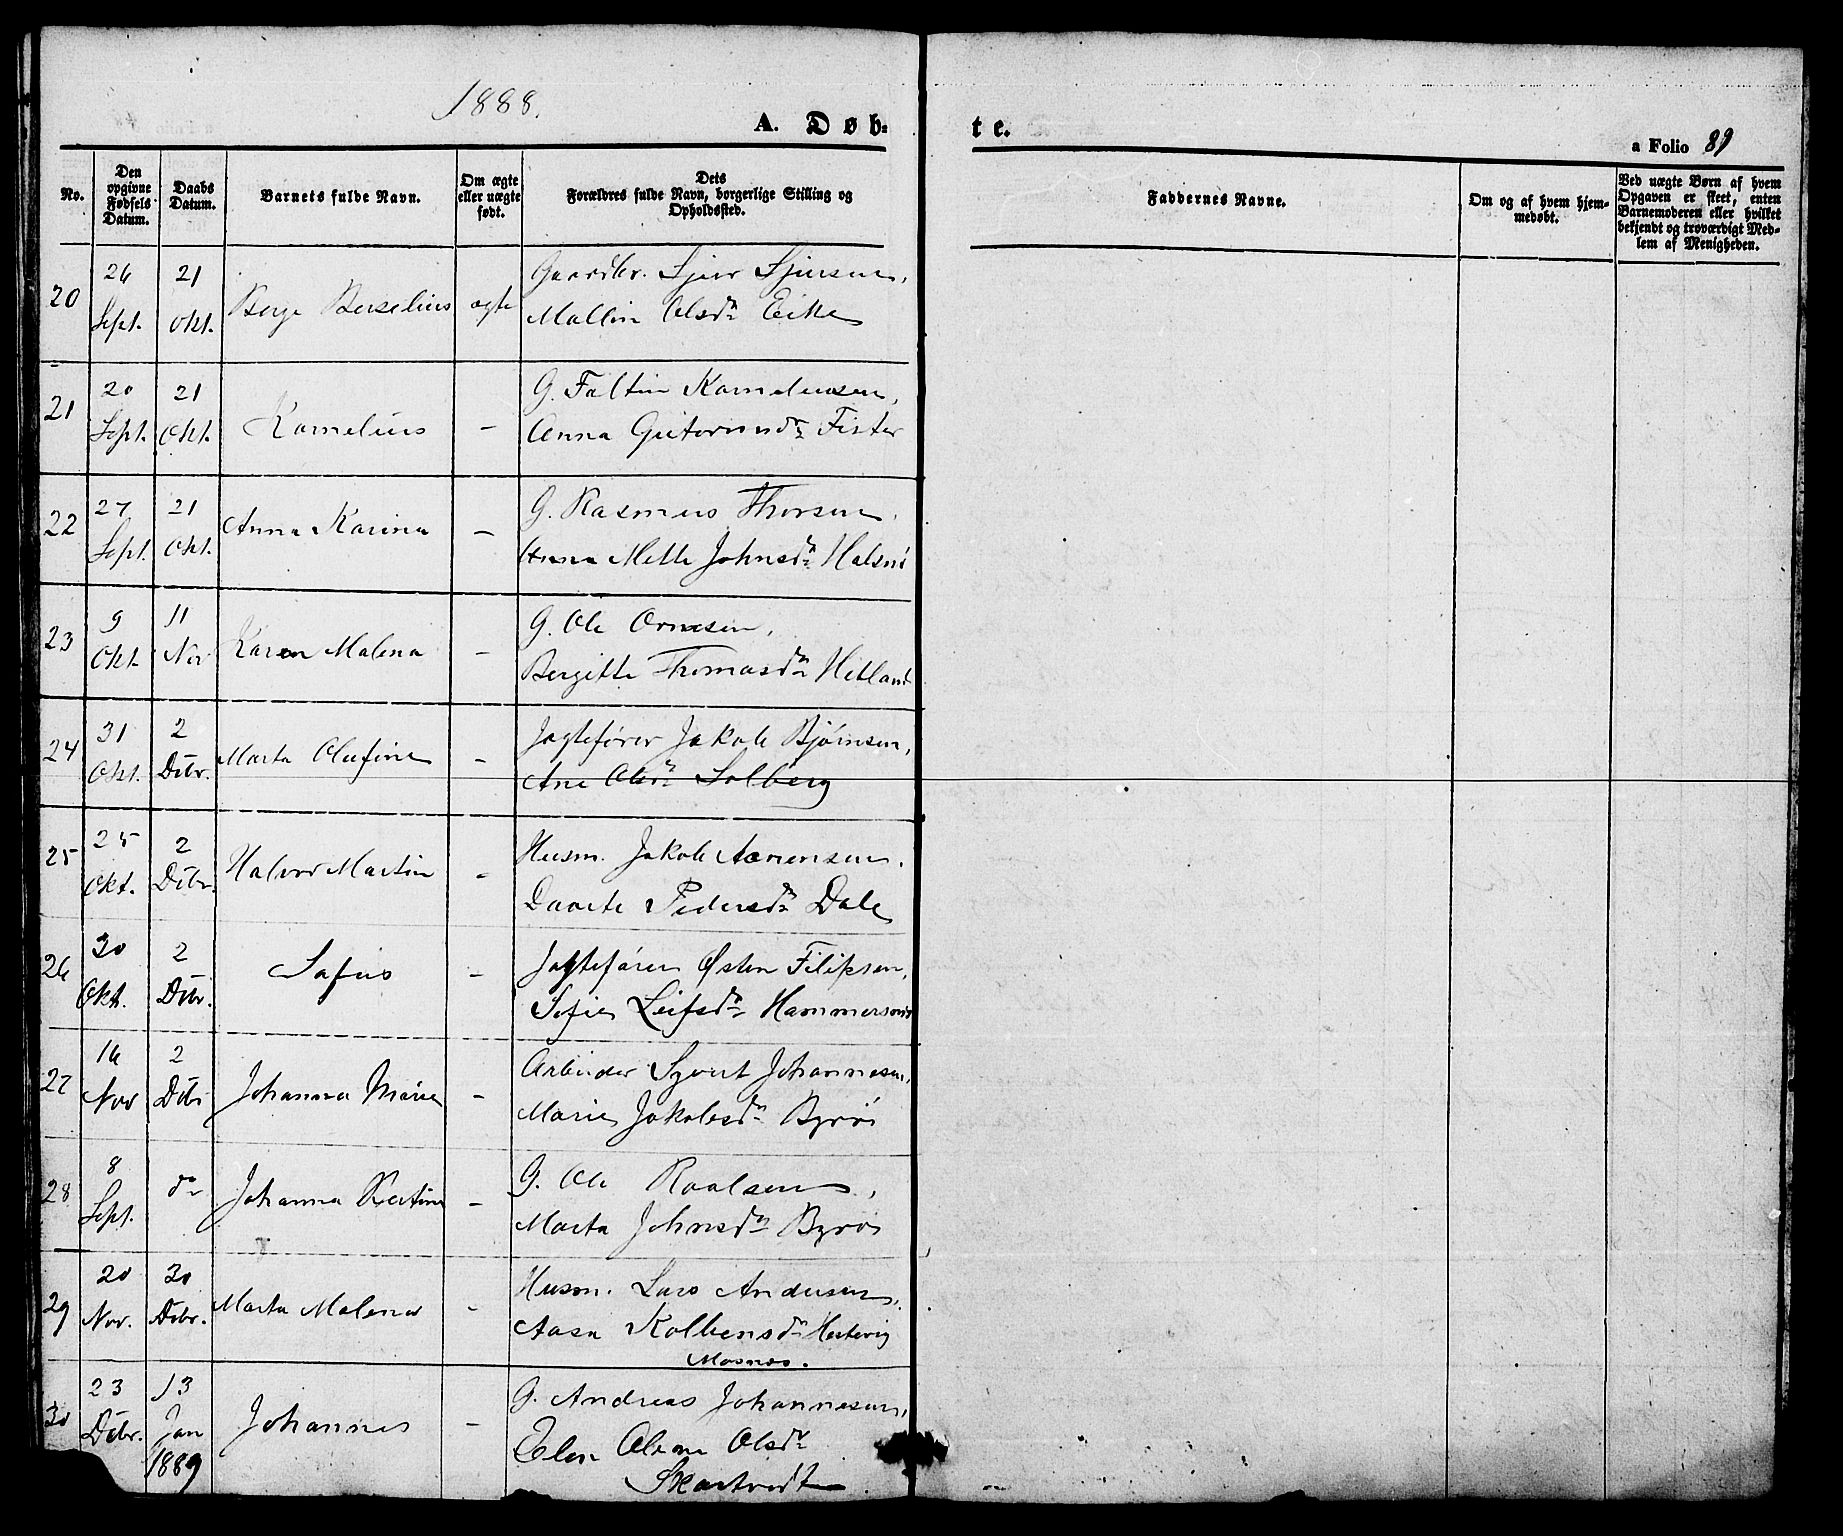 1888.
A. Døb=
te.
a Folio 89
No.
Den opgivne Fødsels Datum.
Daabs Datum.
Barnets fulde Navn.
Om ægte eller uægte født.
Dets Forældres fulde Navn, borgerlige Stilling og Opholdssted.
Faddernes Navne.
Om og af hvem hjemmedøbt.
Ved uægte Børn af hvem Opgaven er skeet, enten Barnemoderen eller hvilket bekjendt og troværdigt Medlem af Menigheden.
20 26 Sept. 21 Okt. Berge Berselius ægte Gaardbr. Sjur Sjursen,
Mallin Olsdr Eike
21 20 Sept. 21 Okt. Kornelius - G. Faltin Kornelius­sen,
Anna Gutormsdr Fister
22 27 Sept. 21 Okt. Anna Karina - G. Rasmus Thorsen,
Anna Mette Johnsdr Halsnö
23 9 Okt. 11 Nov Karen Malena - G. Ole Ornesen,
Bergitte Thomasdr Hetland
24 31 Okt. 2 Debr. Marta Olufine - Jagtefører Jakob Bjørnsen,
Ane Olsdr Solberg
25 25 Okt. 2 Debr. Halvor Martin - Husm. Jakob Aanensen,
Daarte Pedersdr Dale
26 30 Okt. 2 Debr. Sofus - Jagtefører Østen Filipsen,
Sofie Leifsdr
27 16 Nov 2 Debr Johanna Marie - Arbeider Syvert Johannesen,
Marie Jakobsdr Byrö
28 8 Sept. do Johanna Kristine - G. Ole Roalsen,
Marta Johnsdr Byrö
29 20 Nov. 30 Debr. Marta Malena - Husm. Lars Andersen,
Aasa Kolbensdr Hertevig
Mosnes.
30 23 Debr. 13 Jan 1889 Johannes - G. Andreas Johannesen,
Elen Oline Olsdr
Skartvedt